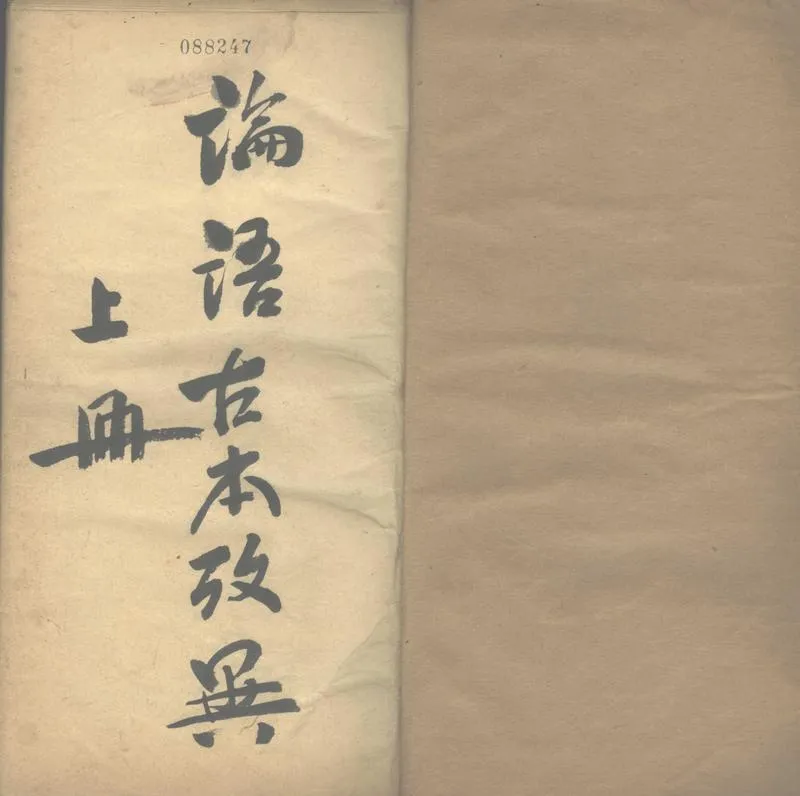 088247
論語古本攷異
上冊